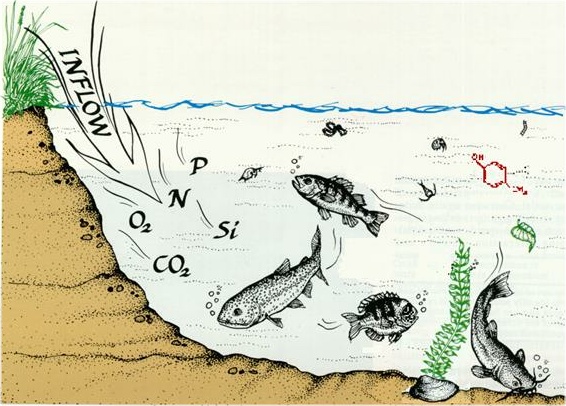 INFLOW
P
N
O₂
Si
CO₂
OH